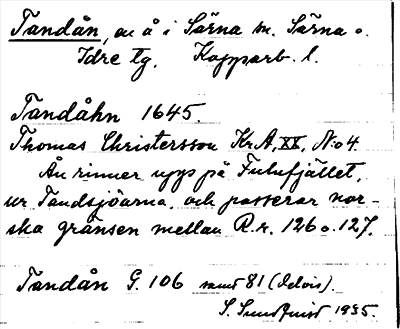 Tandån, en å i Särna sn. Särna o.
Idre tg. Kopparb. l.
Tandåhn 1645.
Thomas Christersson Kr.A, XX, No 4.
Ån rinner upp på Fulufjället,
ur Tandsjöarna, och passerar nor-
ska gränsen mellan R.r. 126 o. 127.
Tandån G. 106 samt 81 (delvis).
S. Sundqvist 1935.